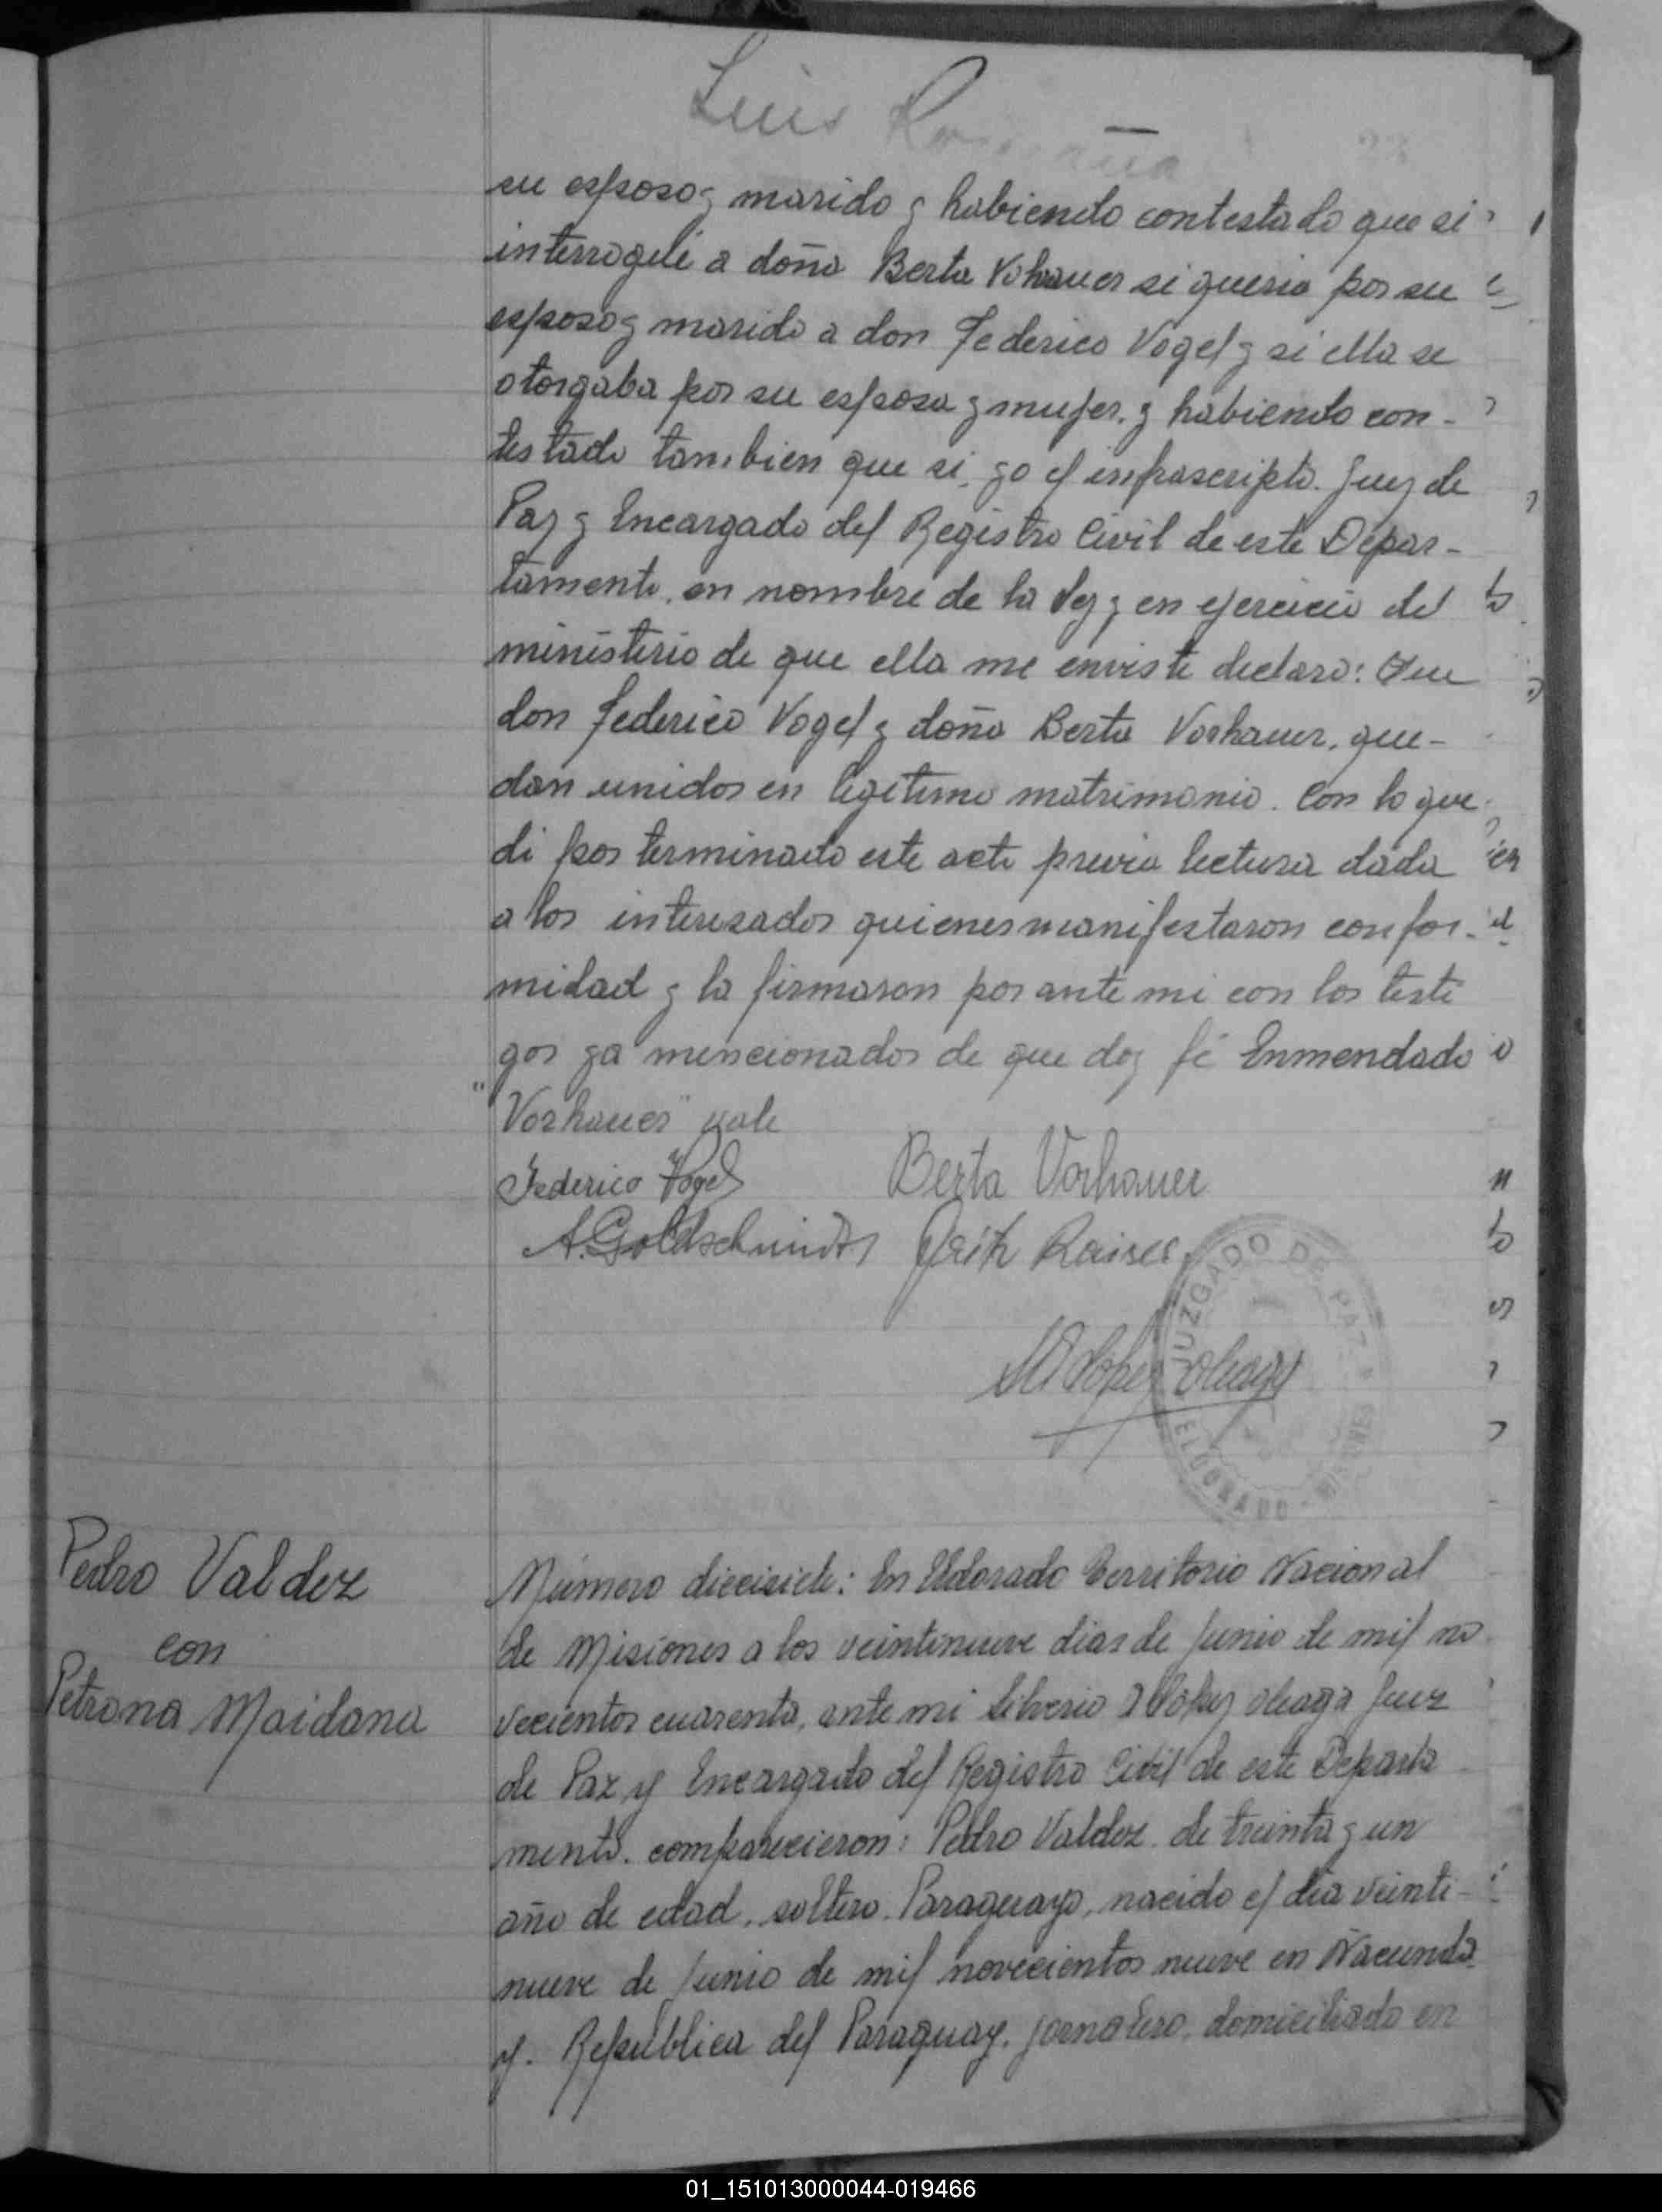 Luis Romaña
su esposo y marido y habiendo contestado que si
interrogué a doña Berta Vohrauer si queria por su
esposo y marido a don Federico Vogel y si ella se
otorgaba por su esposa y mujer, y habiendo con-
testado tambien que si, yo el infrascripto Juez de
Paz y Encargado del Registro Civil de este Depar-
tamento, en nombre de la Ley y en ejercicio del
ministerio de que ella me enviste declaro: Que
don Federico Vogel y doña Berta Vorhauer, que-
dan unidos en legitimo matrimonio. Con lo que
di por terminado este acto previa lectura dada
a los interesados quienes manifestaron confor-
midad y la firmaron por ante mi con los testi
gos ya mencionados de que doy fé Enmendado
"Vorhauer" vale
Federico Vogel Berta Vorhauer
A. Goldschmidt
López Oleaga
JUZGADO DE PAZ
ELDORADO - MISIONES
Pedro Valdez
con
Petrona Maidana
Número diecisiete: En Eldorado Territorio Nacional
de Misiones a los veintinueve dias de Junio de mil no
vecientos cuarenta, ante mi Silverio López Oleaga Juez
de Paz y Encargado del Registro Civil de este Departa
mento, comparecieron: Pedro Valdez de treinta y un
año de edad, soltero, Paraguayo, nacido el dia veinti-
nueve de Junio de mil novecientos nueve en Ñacunda
y. Republica del Paraguay, jornalero, domiciliado en
01_151013000044-019466